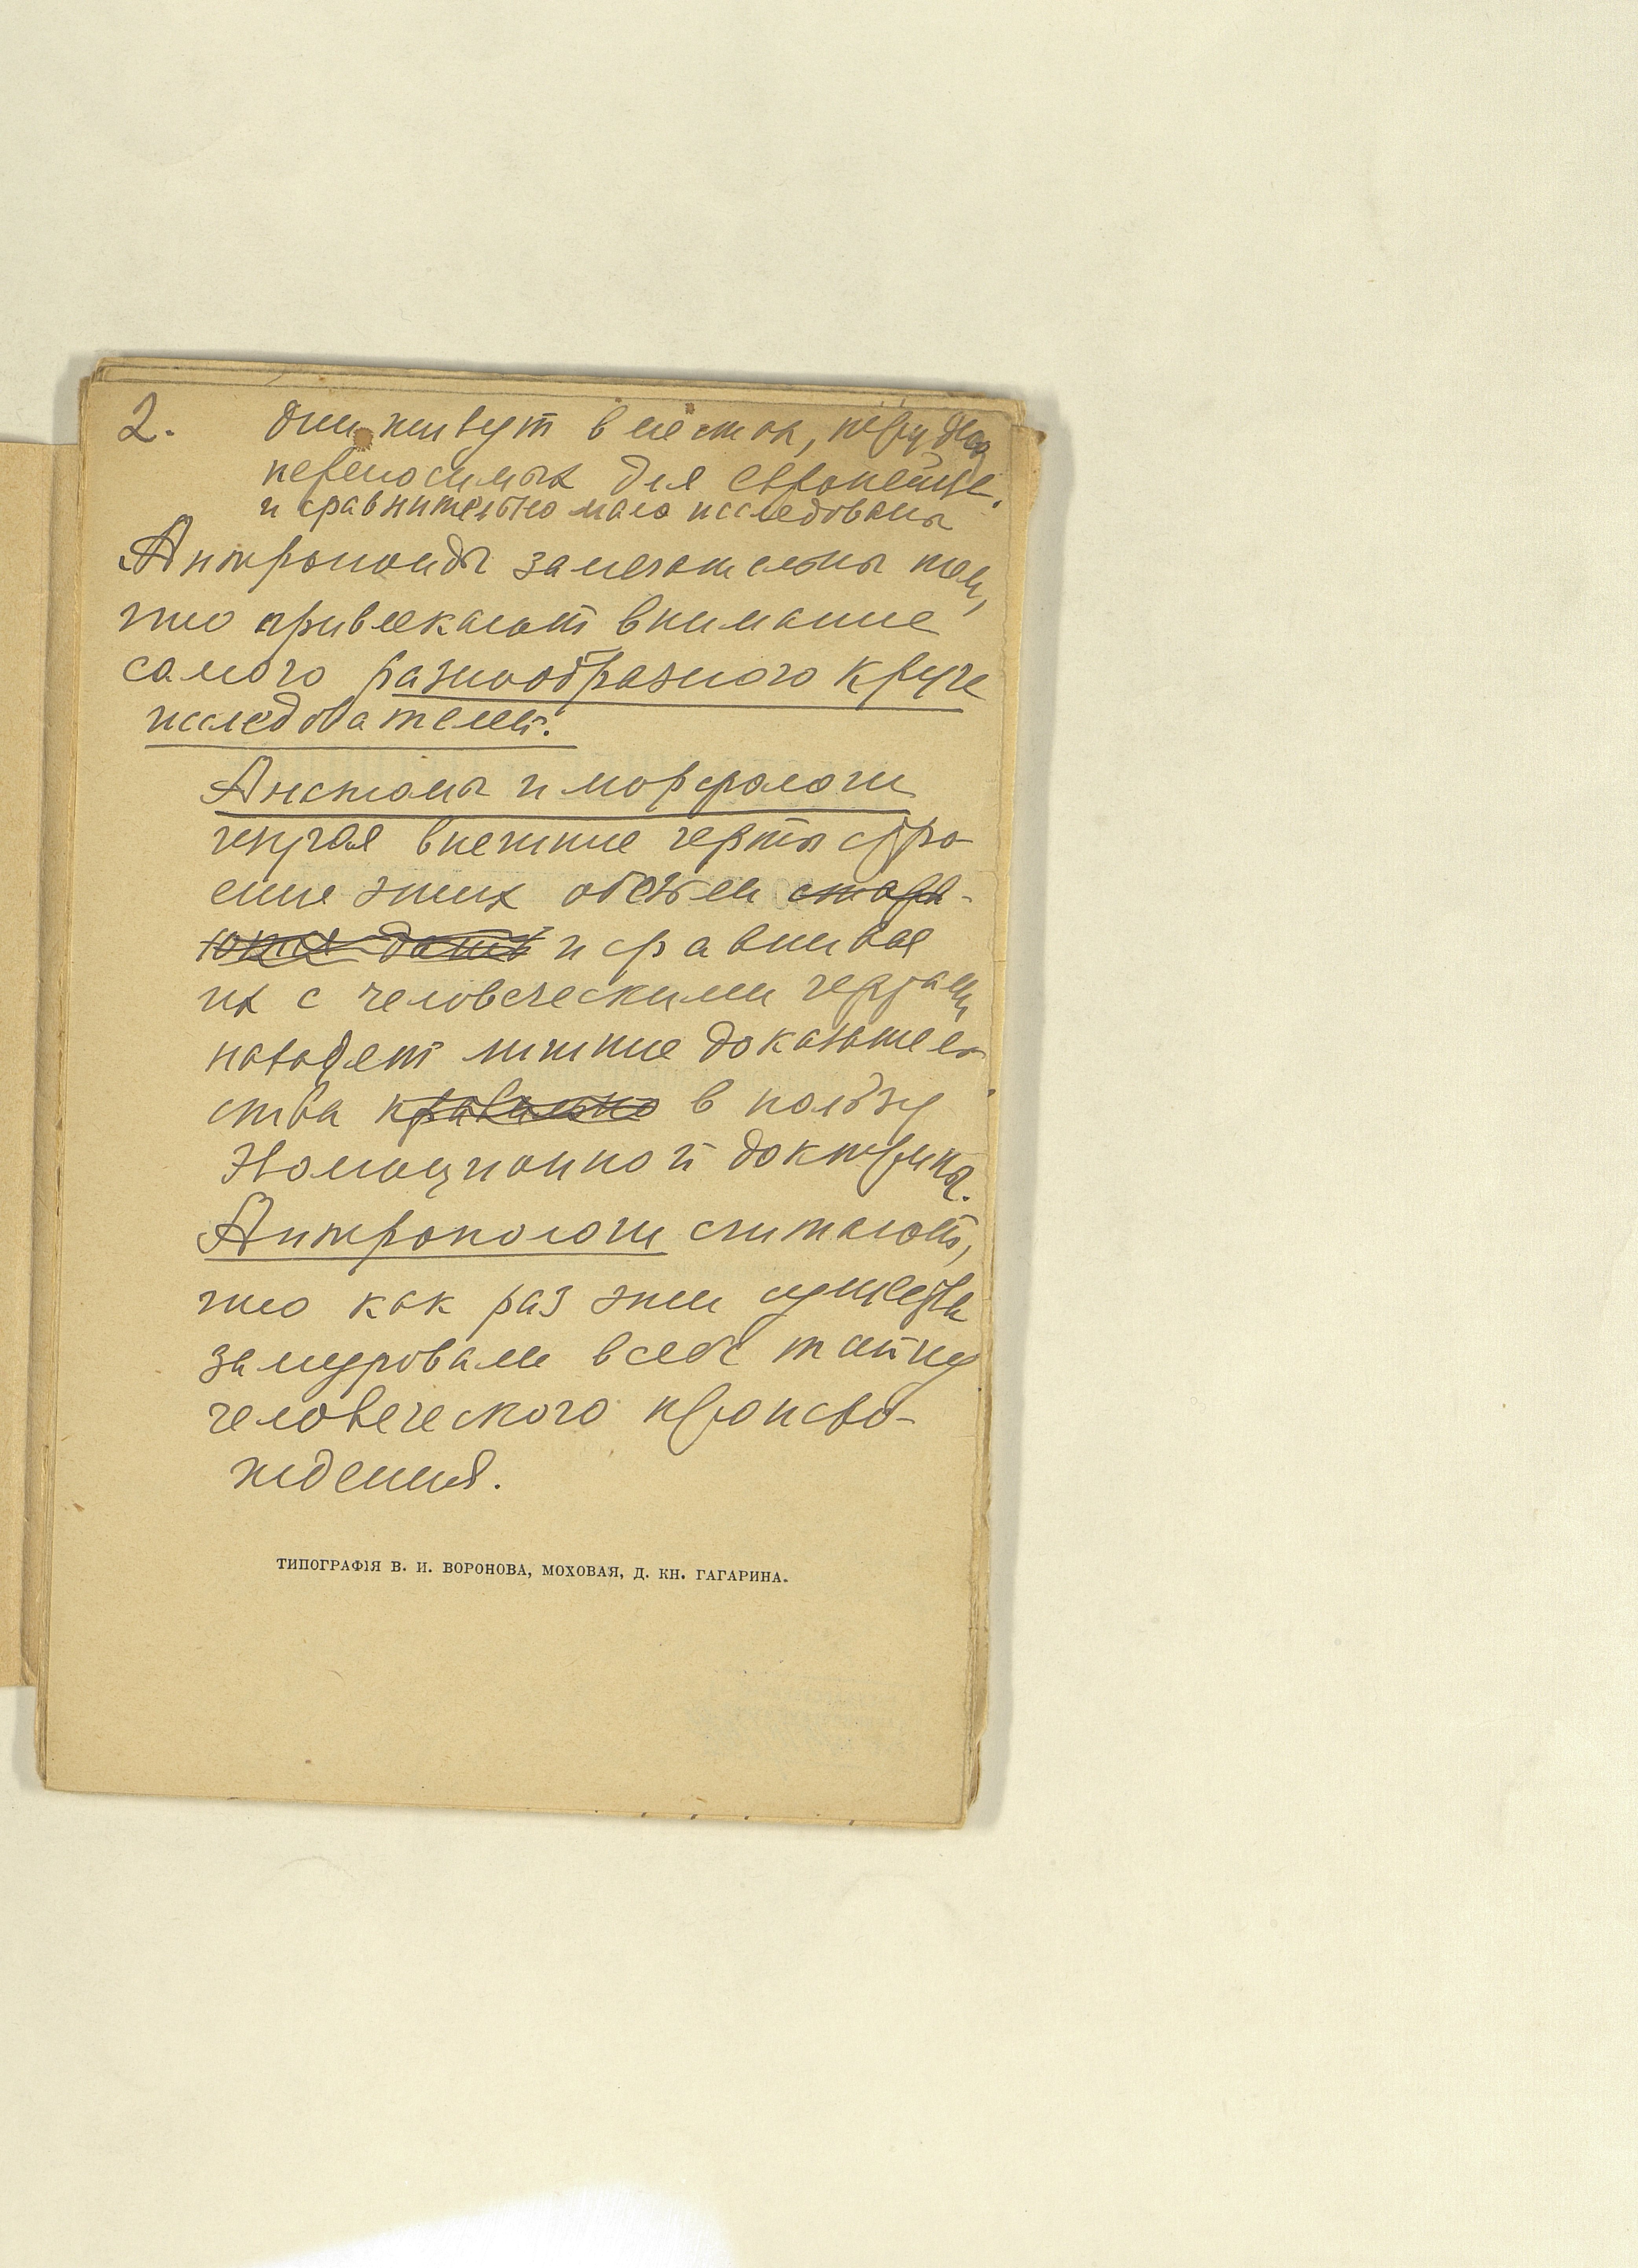 2. Они живут в местах, трудно
переносимых для европейце.
и сравнительно мало исследованы
Антропоиды замечательны тем,
что привлекают внимание
самого разнообразного круга
исследователей.
Анатомы и морфологи
изучая внешние черты стро-
ение этих обезьян стара-
ются дать и сравнивая
их с человеческими чертами
находят лишние доказатель
ства в пользу
Эволюционной доктрины.
Антропологи считают,
что как раз эти существа
замуровали в себе тайну
человеческого происхо-
ждения.
ТИПОГРАФІЯ В. И. ВОРОНОВА, МОХОВАЯ, Д. КН. ГАГАРИНА.